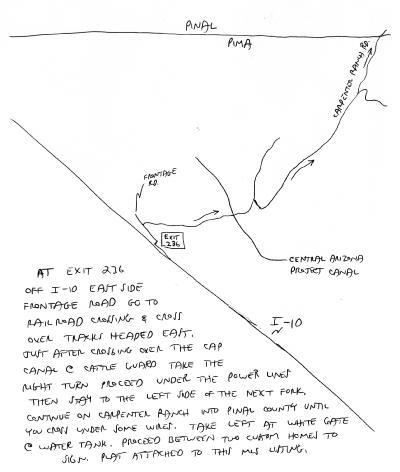 PINAL
PIMA
CARPENTER RANCH RD.
FRONTAGE
RD.
EXIT
236
CENTRAL ARIZONA
PROJECT CANAL
I-10
AT EXIT 236
OFF I-10 EAST SIDE
FRONTAGE ROAD GO TO
RAILROAD CROSSING & CROSS
OVER TRACKS HEADED EAST.
JUST AFTER CROSSING OVER THE CAP
CANAL @ CATTLE GUARD TAKE THE
RIGHT TURN PROCEED UNDER THE POWER LINES
THEN STAY TO THE LEFT SIDE OF THE NEXT FORK.
CONTINUE ON CARPENTER RANCH INTO PINAL COUNTY UNTIL
YOU CROSS UNDER SOME WIRES. TAKE LEFT AT WHITE GATE
@ WATER TANK. PROCEED BETWEEN TWO CUSTOM HOMES TO
SIGN. PLAT ATTACHED TO THIS MLS LISTING.